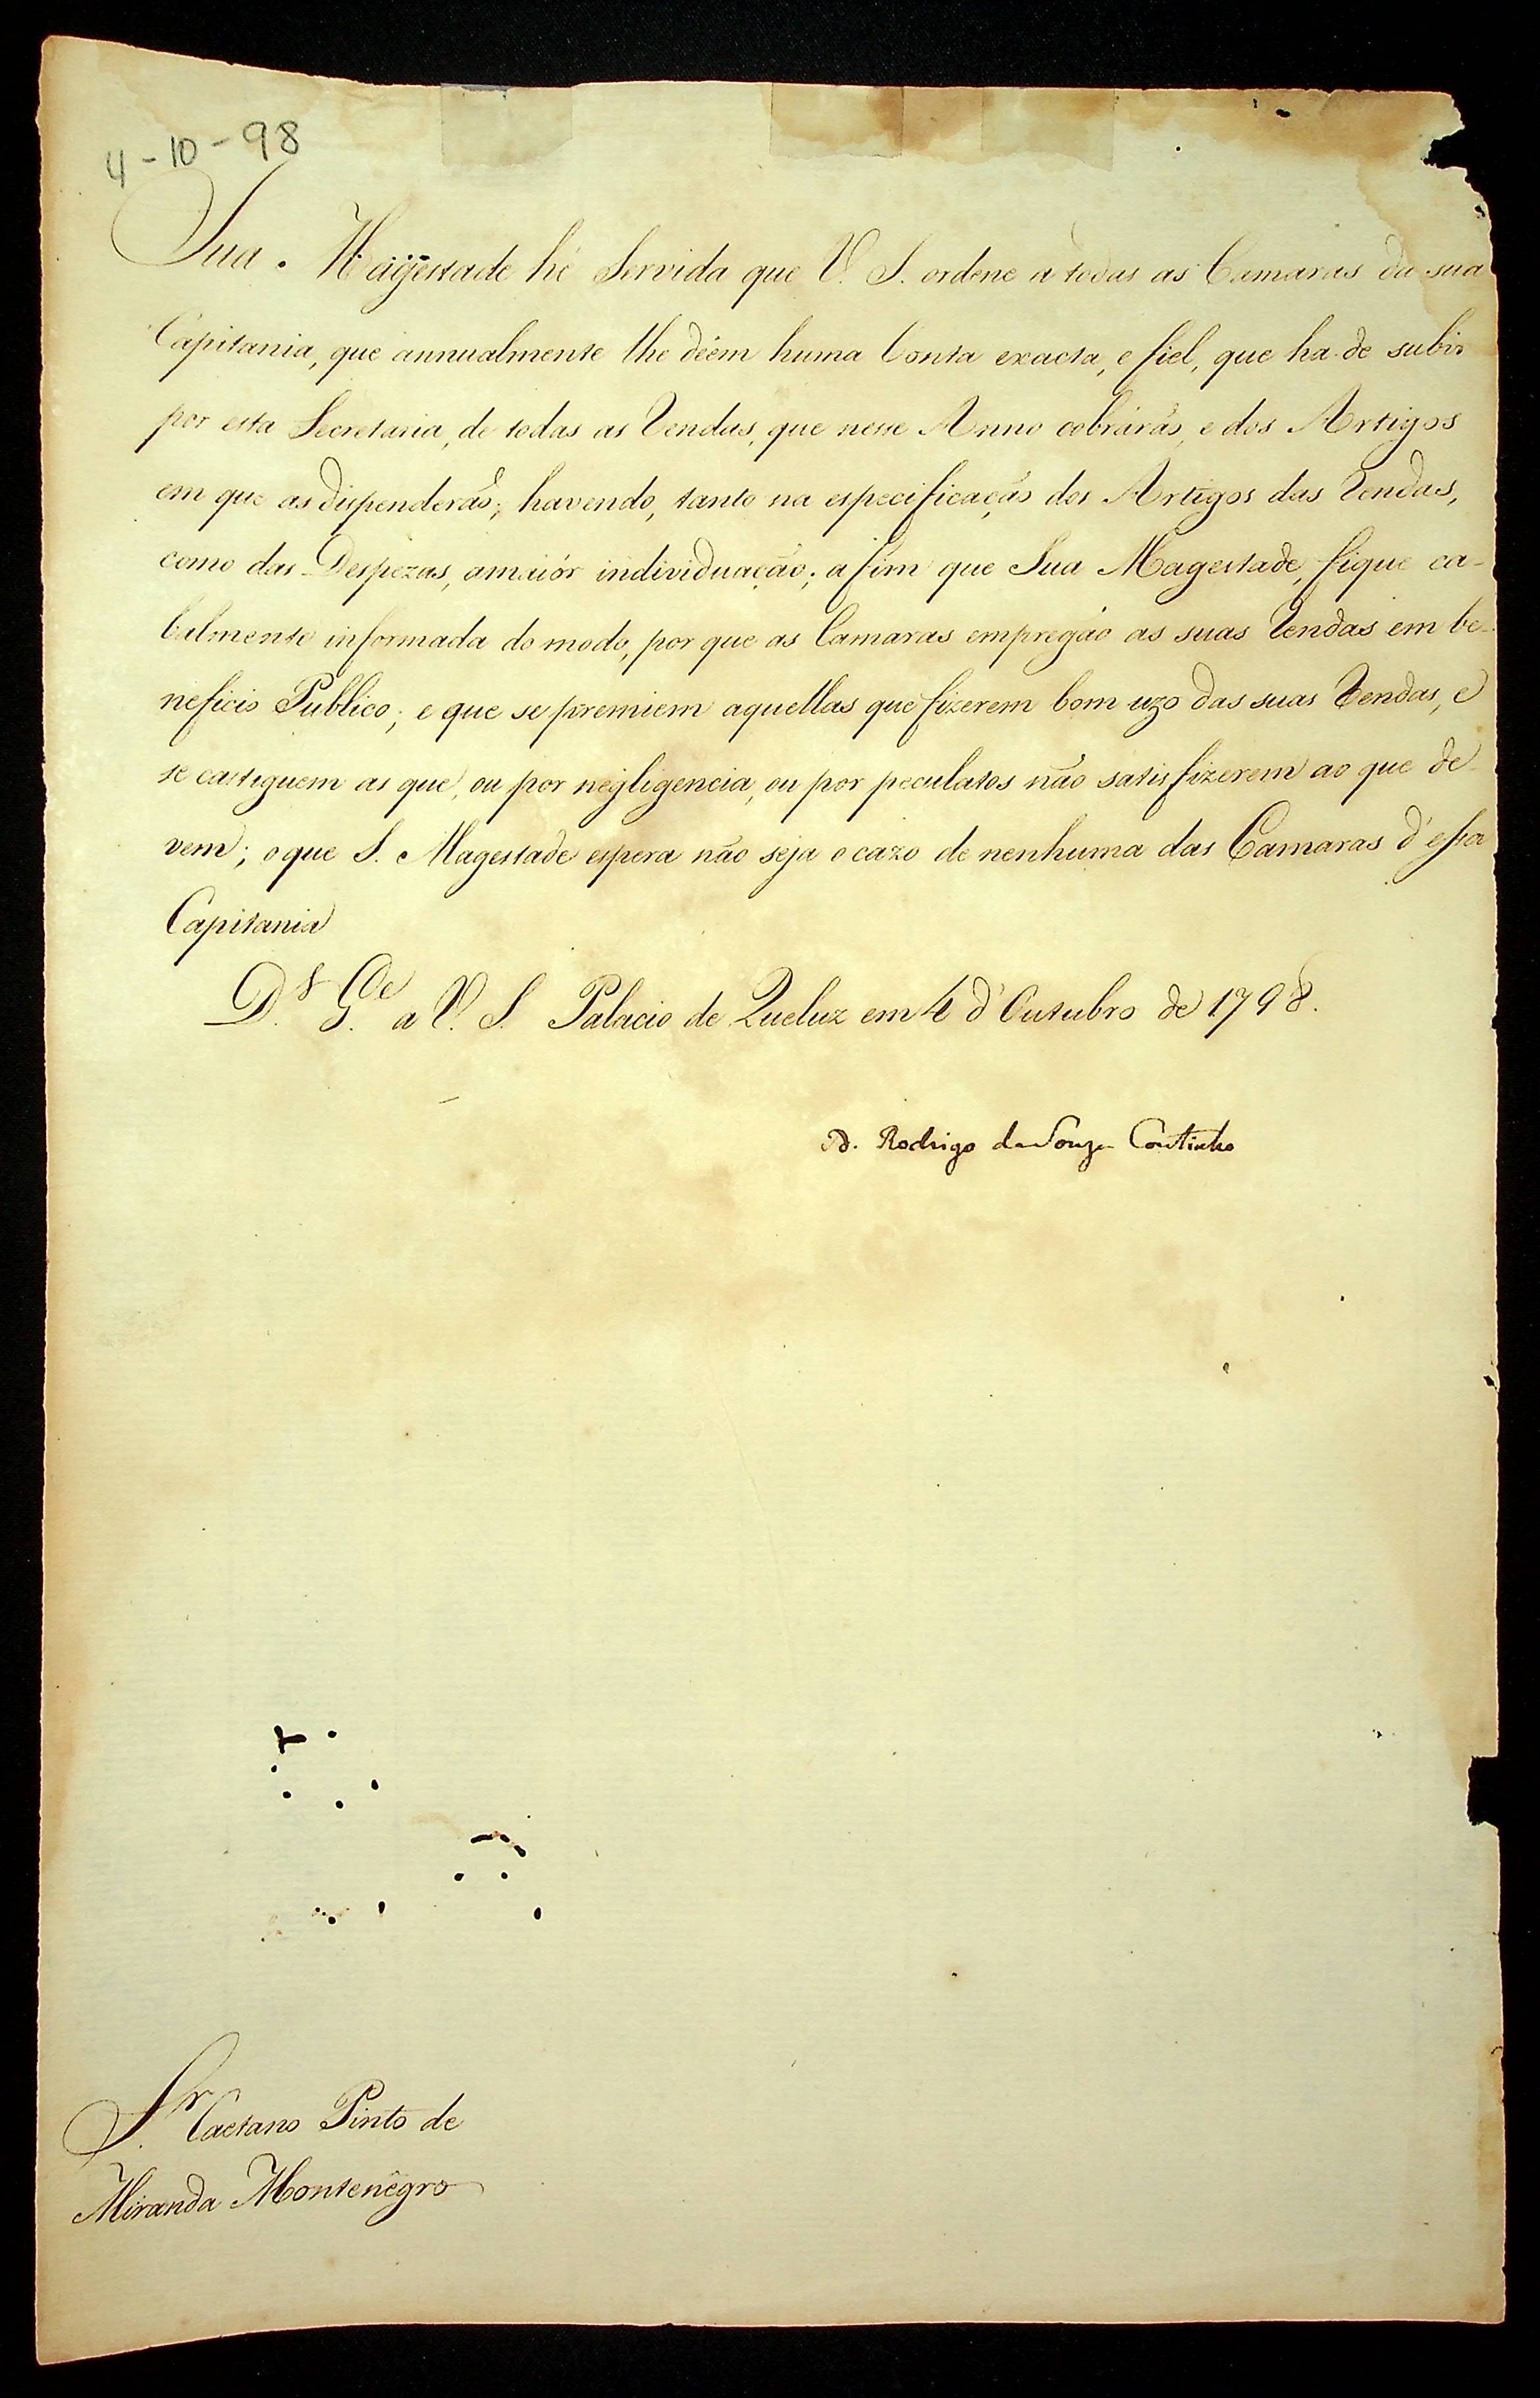 4-10-98
Sua Magestade hé Servida que V. S. ordene a todas as Camaras da sua
Capitania, que annualmente lhe dêem huma Conta exacta, e fiel, que ha de subir
por esta Secretaria, de todas as Rendas, que nesse Anno cobrárão, e dos Artigos
em que as dispenderão; havendo, tanto na especificação dos Artigos das Rendas,
como das Despezas, a maiór individuação; a fim que Sua Magestade, fique ca-
balmente informada do modo, por que as Camaras empregão as suas Rendas em be-
neficio Publico; e que se premiem aquellas que fizerem bom uzo das suas Rendas, e
se castiguem as que, ou por negligencia, ou por peculatos não satisfizerem ao que de-
vem; o que S. Magestade espera não seja o cazo de nenhuma das Camaras d'essa
Capitania
D.s G.de a V. S. Palacio de Queluz em 4 d'Outubro de 1798.
D. Rodrigo de Souza Coutinho
S.r Caetano Pinto de
Miranda Montenêgro